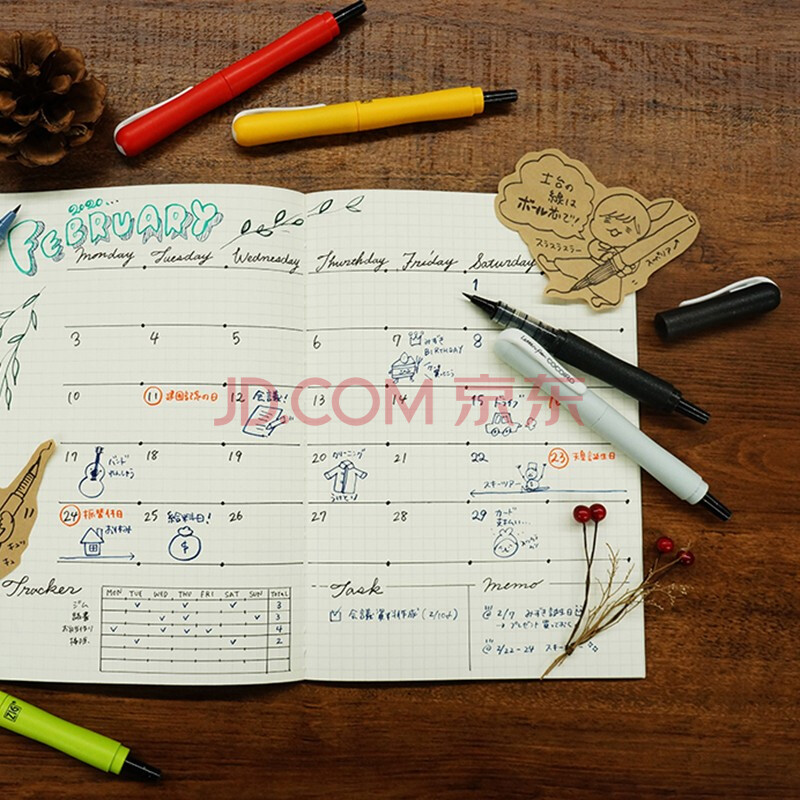 2020...
FEBRUARY
Monday Tuesday Wednesday Thursthday Friday Saturday
土台の
線は
ボール芯で!
スラスラスラー
1
3 4 5 6 7 8
みずき
BIRTHDAY
10 11 建国記念の日 12 会議! 13 14 15 ドライブ 16
JD.COM 京东
17 18 19 20 クリーニング 21 22 23 天皇誕生日
バンド
れんしゅう
スキーツアー
24 振替休日 25 給料日! 26 27 28 29 カード
Tracker
MON TUE WED THU FRI SAT SUN TOTAL
ジム 3
読書 3
お弁当作り 4
掃除 2
Task
会議資料作成 (2/10〆)
Memo
@ 2/7 みずき誕生日
→ プレゼント買っておく
@ 2/22-24 スキー